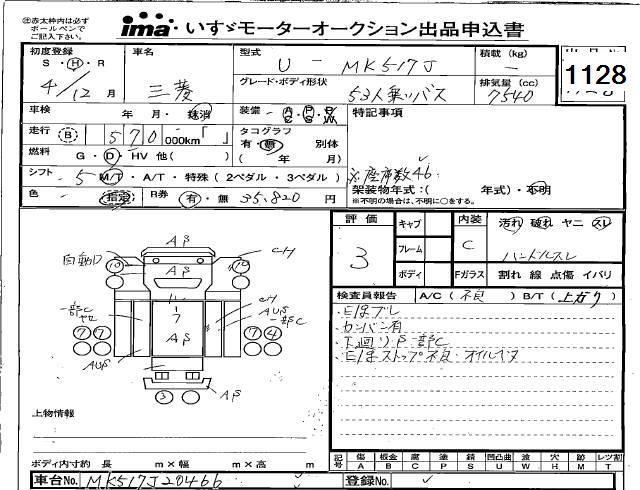 ㊟赤太枠内は必ず
ボールペンで
ご記入下さい。
ima いすゞモーターオークション出品申込書
初度登録
S・H・R
4/12月
車名
三菱
型式
U - MK517J
グレード・ボディ形状
53人乗りバス
積載 (kg)
-
排気量 (cc)
7540
1128
車検
年 月・抹消
装備
特記事項
走行 (B) 570 000km「 」
タコグラフ
有・無 別体
( 年 月)
燃料
G・D・HV 他( )
シフト 5 M/T・A/T・特殊 (2ペダル・3ペダル)
※座席数46
架装物年式:( 年式)・不明
※不明の場合は、不明に○をする。
色
指定
R券
有・無 35,820 円
評価
3
キャブ
フレーム
ボディ
内装
C
Fガラス
汚れ 破れ ヤニ スレ
ハンドルスレ
割れ 線 点傷 イバリ
検査員報告 A/C (不良) B/T (上がり)
カンバン有
下廻りP一部C
自動D
10
Aβ
10
CH
Aβ
一部C
7
7
7
CH
AUβ
一部C
7
4
Aβ
AUβ
3
Aβ
上物情報
ボディ内寸約 長 m×幅 m×高 m
記号
傷 A
板金 B
腐 C
塗 P
錆 S
凹凸曲 U
波 W
穴 H
跡 M
レツ割 T
車台No. MK517J20466
登録No.